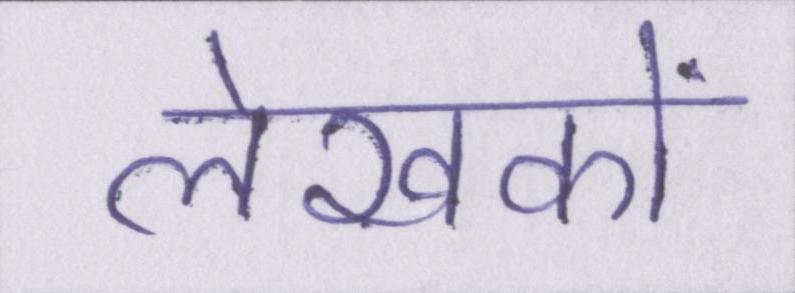 लेखकों